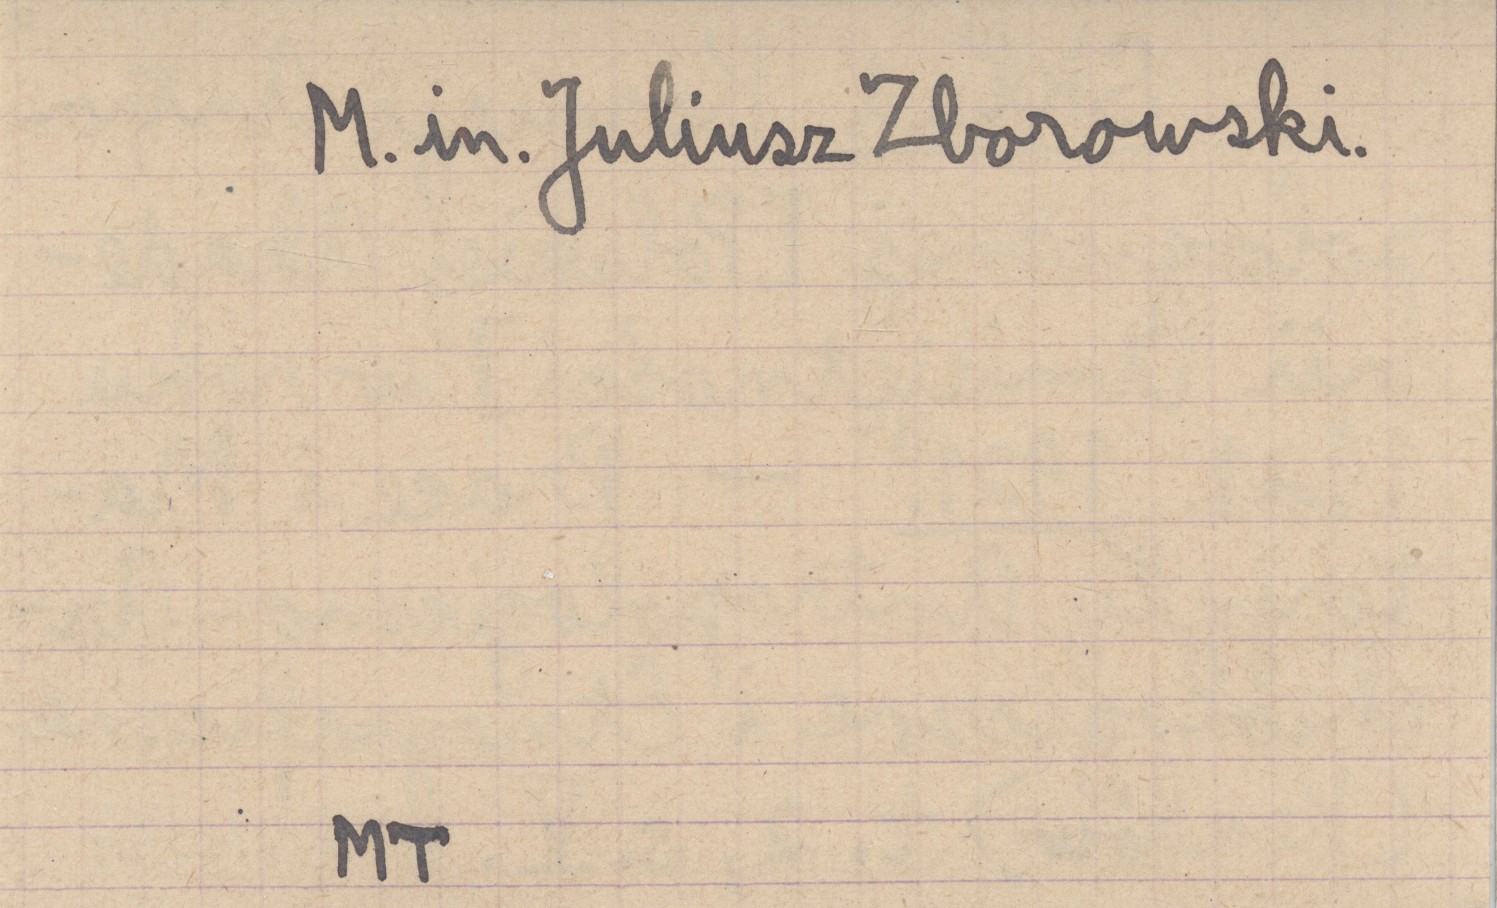 M. in. Juliusz Zborowski.
MT